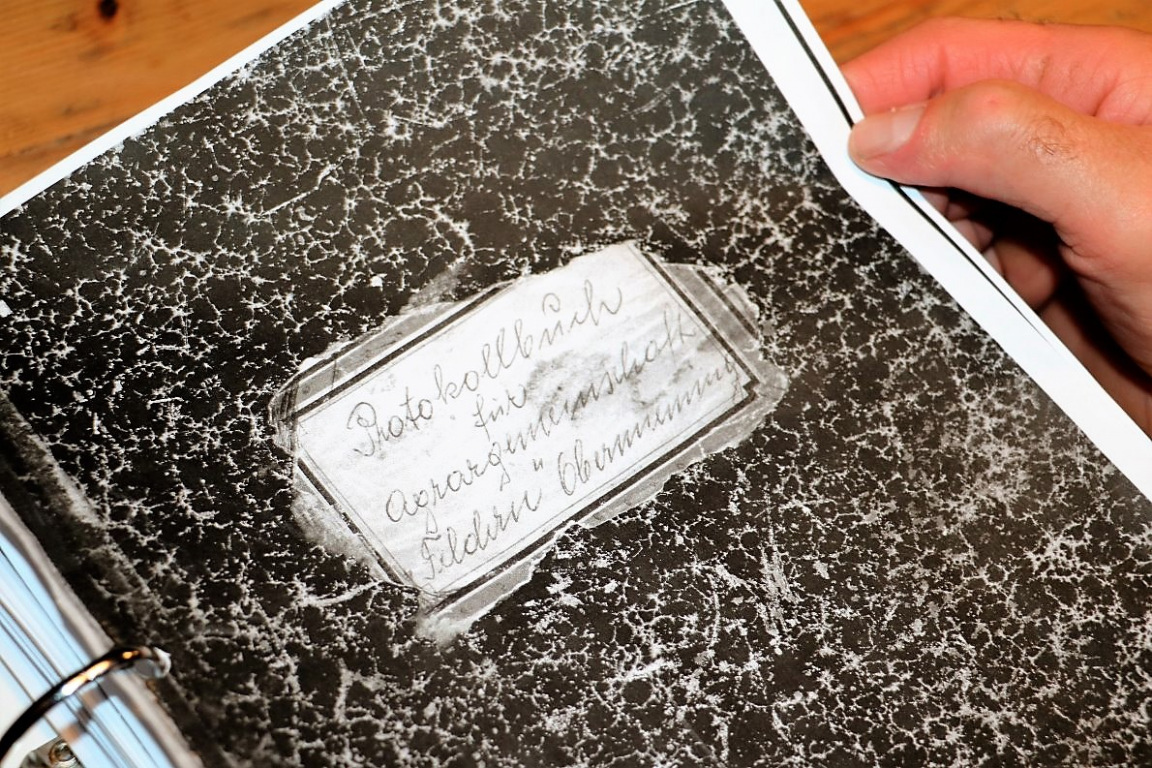 Protokollbuch
für
Agrargemeinschaft
Feldern Obermieming